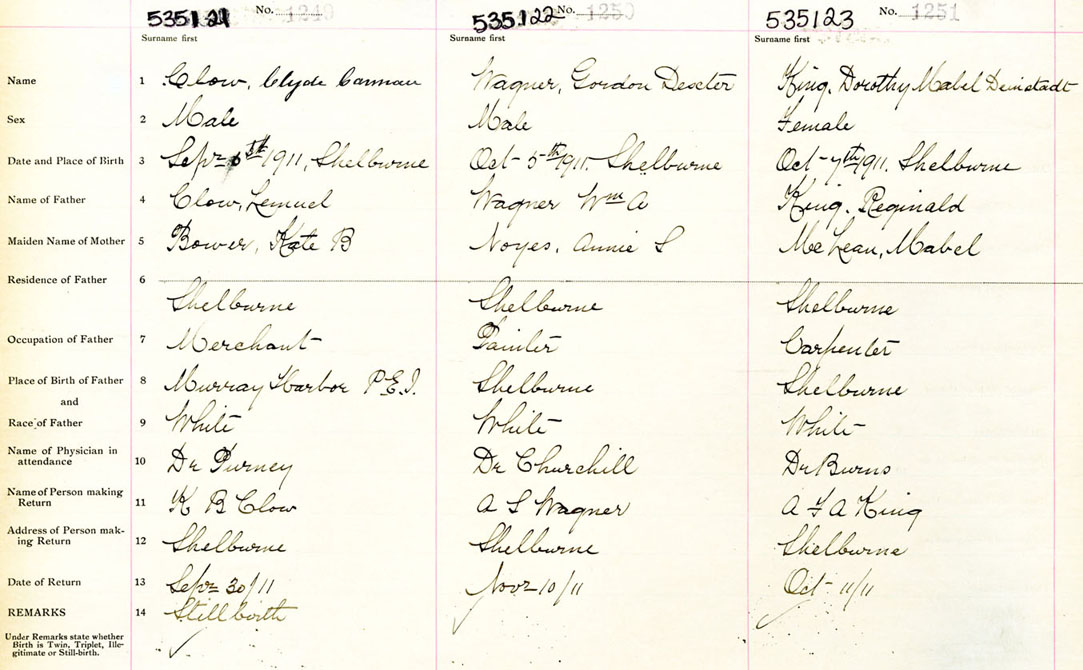 535121 No. 1249 535122 No. 1250 535123 No. 1251
Surname first Surname first Surname first
Name 1 Clow, Clyde Carman Wagner, Gordon Dexter King, Dorothy Mabel Deinstadt
Sex 2 Male Male Female
Date and Place of Birth 3 Sept 5th 1911, Shelburne Oct 5th 1911. Shelburne Oct 7th 1911. Shelburne
Name of Father 4 Clow, Lemuel Wagner Wm A King. Reginald
Maiden Name of Mother 5 Bower, Kate B Noyes, Annie S McLean, Mabel
Residence of Father 6
Shelburne Shelburne Shelburne
Occupation of Father 7 Merchant Painter Carpenter
Place of Birth of Father 8 Murray Harbor P.E.I. Shelburne Shelburne
and
Race of Father 9 White White White
Name of Physician in
attendance 10 Dr Purney Dr Churchill Dr Burns
Name of Person making
Return 11 K B Clow A S Wagner A F A King
Address of Person mak-
ing Return 12 Shelburne Shelburne Shelburne
Date of Return 13 Sept 30/11 Nov 10/11 Oct 11/11
REMARKS 14 Stillbirth
Under Remarks state whether
Birth is Twin, Triplet, Ille-
gitimate or Still-birth.